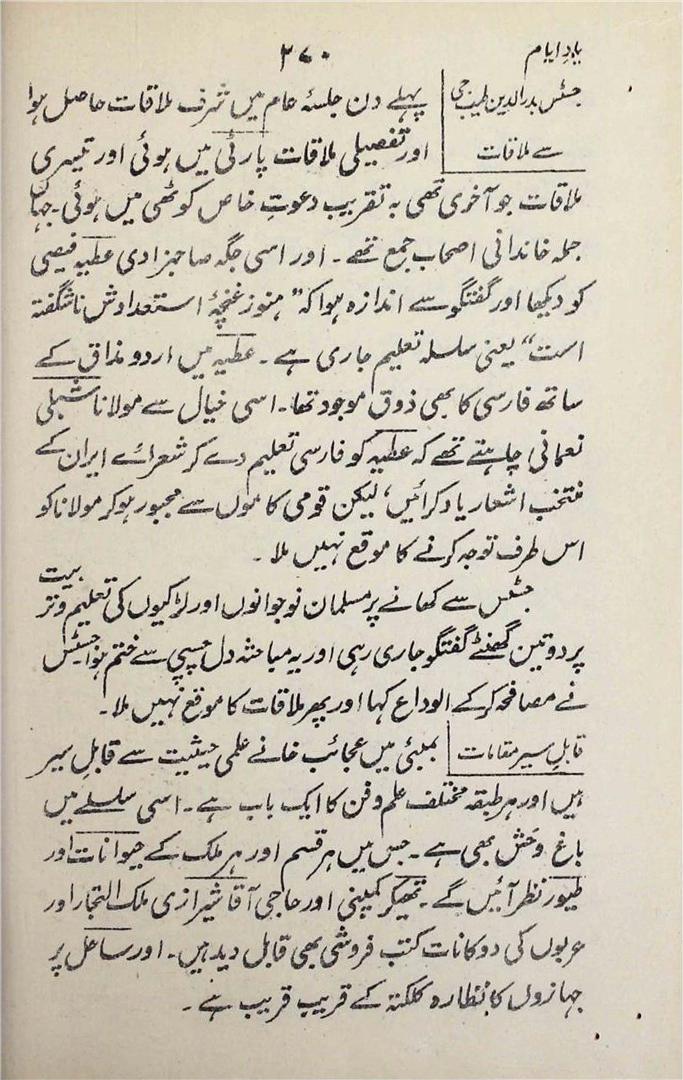 یادِ ایام
۳۷۰
جسٹس بدرالدین طیب جی
سے ملاقات
پہلے دن جلسۂ عام میں شرف ملاقات حاصل ہوا
اور تفصیلی ملاقات پارٹی میں ہوئی اور تیسری
ملاقات جو آخری تھی بہ تقریب دعوتِ خاص کوٹھی میں ہوئی۔ جہاں
جملہ خاندانی اصحاب جمع تھے۔ اور اسی جگہ صاحبزادی عطیہ فیضی
کو دیکھا اور گفتگو سے اندازہ ہوا کہ "ہنوز غنچۂ استعدادش ناشگفتہ
است" یعنی سلسلہ تعلیم جاری ہے۔ عطیہ میں اردو مذاق کے
ساتھ فارسی کا بھی ذوق موجود تھا۔ اسی خیال سے مولانا شبلی
نعمانی چاہتے تھے کہ عطیہ کو فارسی تعلیم دے کر شعرائے ایران کے
منتخب اشعار یاد کرائیں، لیکن قومی کاموں سے مجبور ہو کر مولانا کو
اس طرف توجہ کرنے کا موقع نہیں ملا۔
جسٹس سے کھانے پر مسلمان نوجوانوں اور لڑکیوں کی تعلیم و تربیت
پر دو تین گھنٹے گفتگو جاری رہی اور یہ مباحثہ دل چسپی سے ختم ہوا جسٹس
نے مصافحہ کر کے الوداع کہا اور پھر ملاقات کا موقع نہیں ملا۔
قابلِ سیر مقامات
بمبئی میں عجائب خانے علمی حیثیت سے قابلِ سیر
ہیں اور ہر طبقہ مختلف علم و فن کا ایک باب ہے۔ اسی سلسلے میں
باغ وحش بھی ہے۔ جس میں ہر قسم اور ہر ملک کے حیوانات اور
طیور نظر آئیں گے۔ تھیکر کمپنی اور حاجی آقا شیرازی ملک التجار اور
عربوں کی دوکانات کتب فروشی بھی قابل دید ہیں۔ اور ساحل پر
جہازوں کا نظارہ کلکتہ کے قریب قریب ہے۔